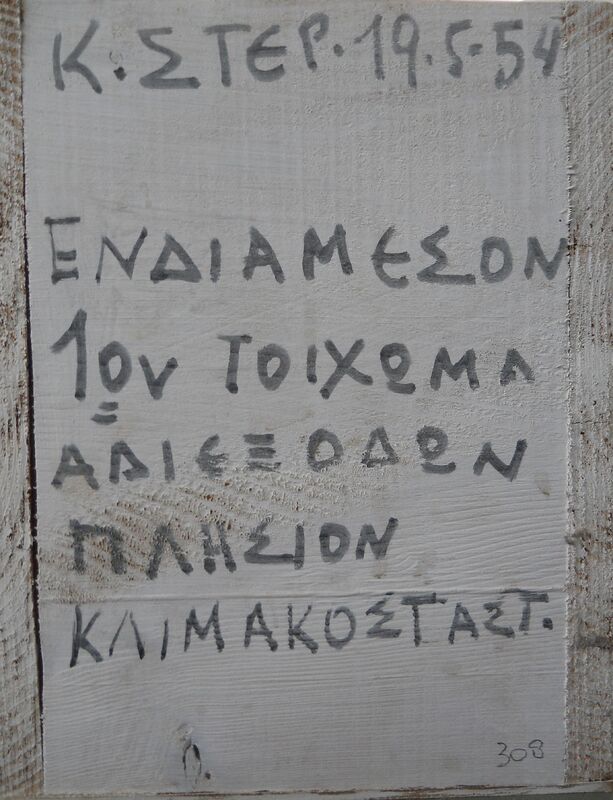 Κ.ΣΤΕΡ.19.5.54
ΕΝΔΙΑΜΕΣΟΝ
1ον ΤΟΙΧΩΜΑ
ΑΔΙΕΞΟΔΩΝ
ΠΛΗΣΙΟΝ
ΚΛΙΜΑΚΟΣΤΑΣΤ.
308